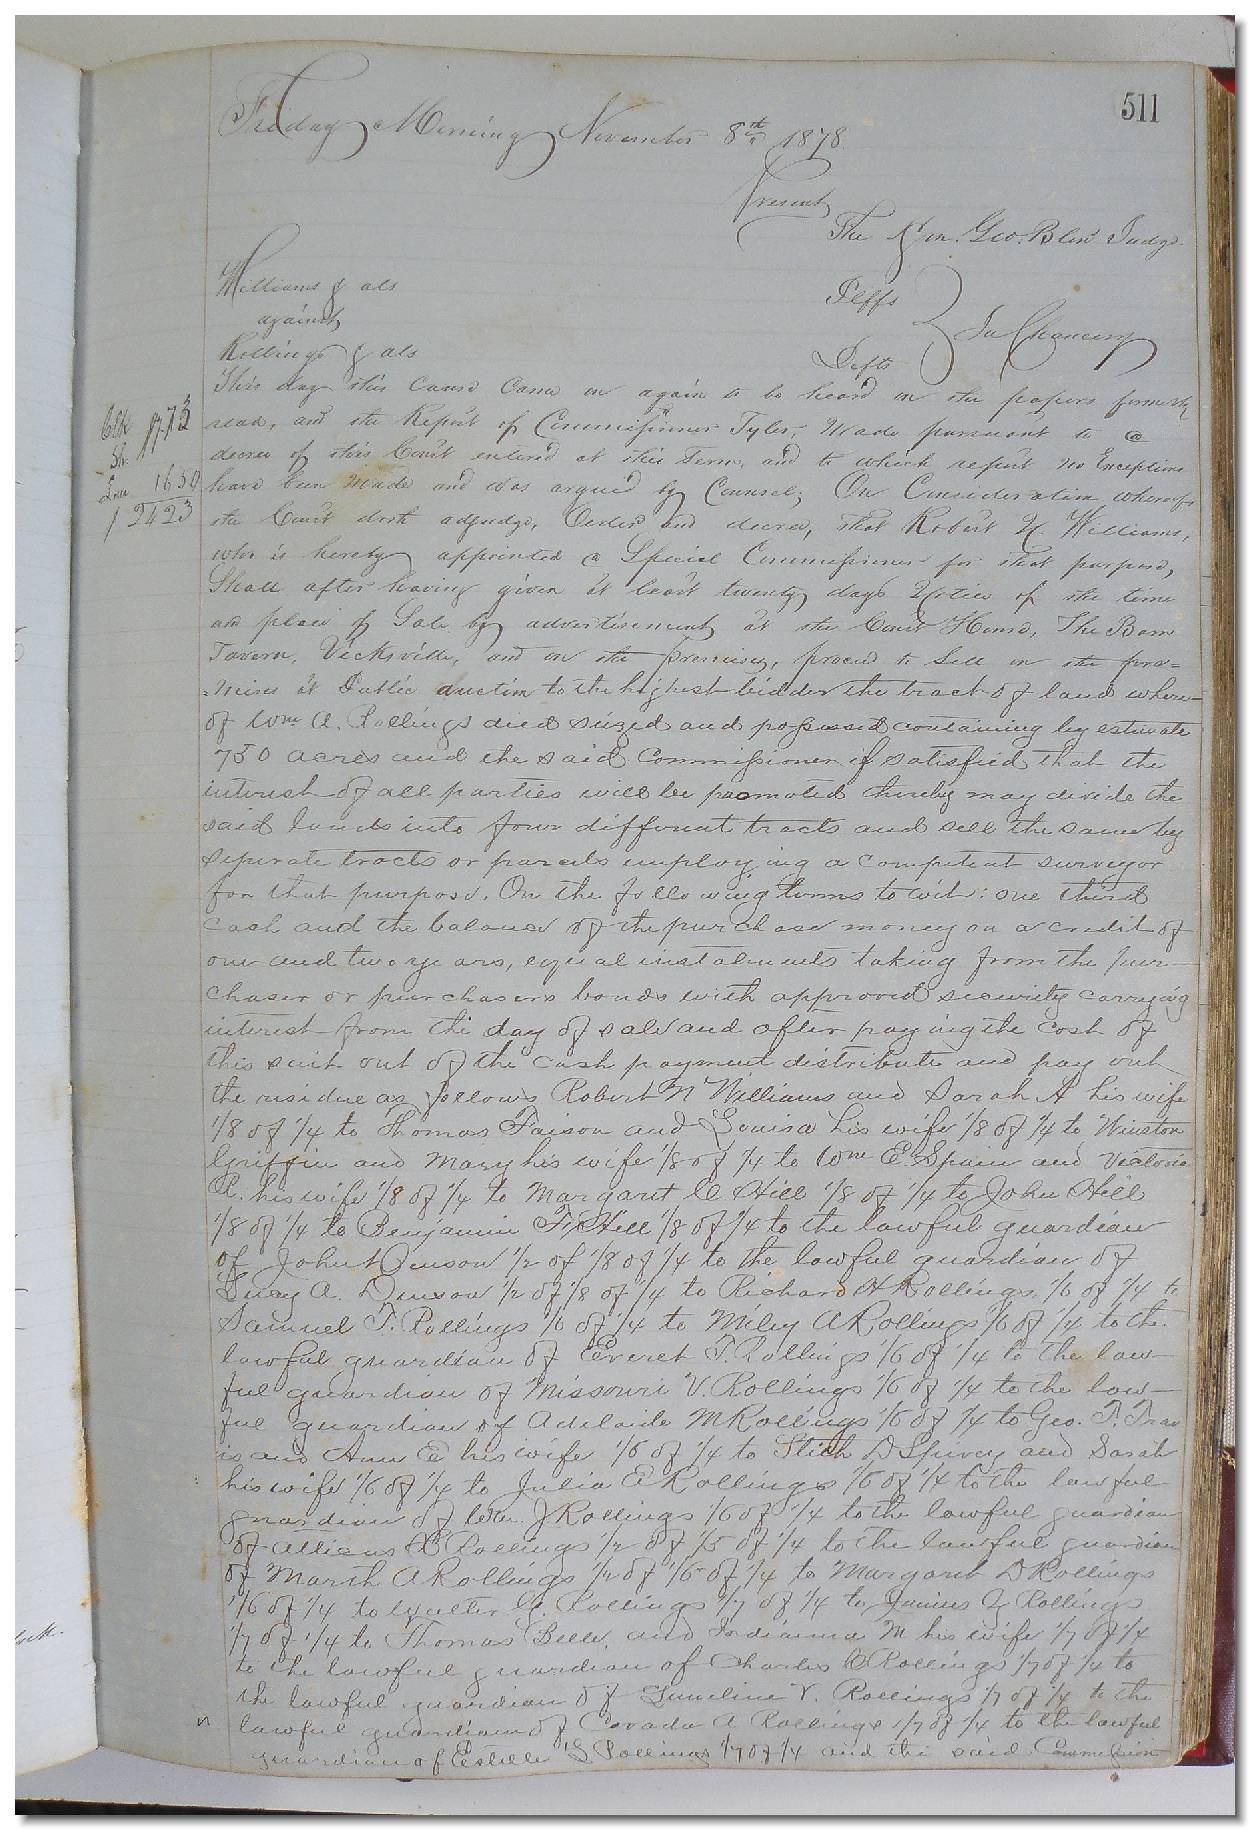 511
Friday Morning November 8th 1878
Present
The Hon. Geo. Blow Judge
Williams & als Plffs
against In Chancery
Rollings & als Defts
This day this cause came on again to be heard on the papers formerly
read, and the Report of Commissioner Tyler, Made pursuant to a
decree of this Court entered at this Term, and to which report no Exceptions
have been made and was argued by Counsel; On Consideration whereof
the Court doth adjudge, Order and decree, that Robert N. Williams,
who is hereby appointed a Special Commissioner for that purpose,
Shall after having given at least twenty days Notice of the time
and place of Sale by advertisement at the Court House, The Barn
Tavern, Vicksville, and on the premises, proceed to Sell on the pre=
=mises at Public Auction to the highest bidder the tract of land where-
of Wm A. Rollings died seized and possessed containing by estimate
750 acres and the said Commissioner if satisfied that the
interest of all parties will be promoted thereby may divide the
said lands into four different tracts and sell the same by
seperate tracts or parcels employing a competent surveyor
for that purpose. On the following terms to wit: one third
cash and the balance of the purchase money on a credit of
one and two years, equal instalments taking from the pur-
chaser or purchasers bonds with approved security carrying
interest from the day of sale and after paying the cost of
this suit out of the cash payment distribute and pay out
the residue as follows Robert N Williams and Sarah A his wife
1/8 of 1/4 to Thomas Faison and Louisa his wife 1/8 of 1/4 to Winston
Griffin and Mary his wife 1/8 of 1/4 to Wm E. Spain and Victoria
R. his wife 1/8 of 1/4 to Margaret C Hill 1/8 of 1/4 to John Hill
1/8 of 1/4 to Benjamin F. Hill 1/8 of 1/4 to the lawful guardian
of John Denson 1/2 of 1/8 of 1/4 to the lawful guardian of
Lucy A. Denson 1/2 of 1/8 of 1/4 to Richard H Rollings 1/6 of 1/4 to
Samuel T. Rollings 1/6 of 1/4 to Miley A Rollings 1/6 of 1/4 to the
lawful guardian of Everet T. Rollings 1/6 of 1/4 to the law-
ful guardian of Missouri V. Rollings 1/6 of 1/4 to the law-
ful guardian of Adelaide M Rollings 1/6 of 1/4 to Geo. T. Trav
is and Ann E his wife 1/6 of 1/4 to Stith D Spivey and Sarah
his wife 1/6 of 1/4 to Julia E Rollings 1/6 of 1/4 to the lawful
guardian of Wm. J Rollings 1/6 of 1/4 to the lawful guardian
of Rollings 1/2 of 1/5 of 1/4 to the lawful guardian
of A Rollings 1/2 of 1/6 of 1/4 to Margaret D Rollings
1/6 of 1/4 to G. Rollings 1/7 of 1/4 to Junius Z Rollings
1/7 of 1/4 to Thomas Bell, and Indianna M his wife 1/7 of 1/4
to the lawful guardian of Charles C Rollings 1/7 of 1/4 to
the lawful guardian of V. Rollings 1/7 of 1/4 to the
lawful guardian of A Rollings 1/7 of 1/4 to the lawful
guardian of Estelle S Rollings 1/7 of 1/4 and the said Commission
Clk 7.73
Sh.
1650
2423